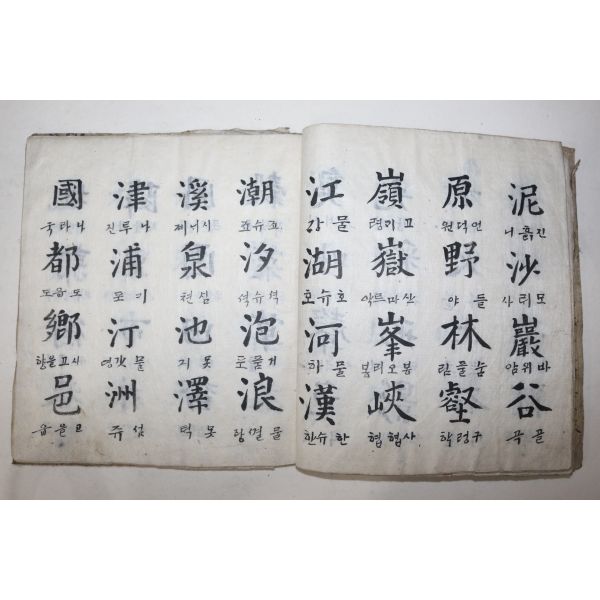 泥
진흙니
沙
모리사
巖
바위암
谷
골곡
原
언덕원
野
들야
林
숩플림
壑
구렁학
嶺
고기령
嶽
산마르악
峯
봉오리봉
峽
협
江
물강
湖
호슈호
河
물하
漢
한슈한
潮
죠슈죠
汐
셕슈셕
泡
거품포
浪
물결랑
溪
시니계
泉
심쳔
池
못지
澤
못턱
津
나루진
浦
기포
汀
물갓졍
洲
섬쥬
國
나라국
都
도읍도
鄕
시골향
邑
고을읍